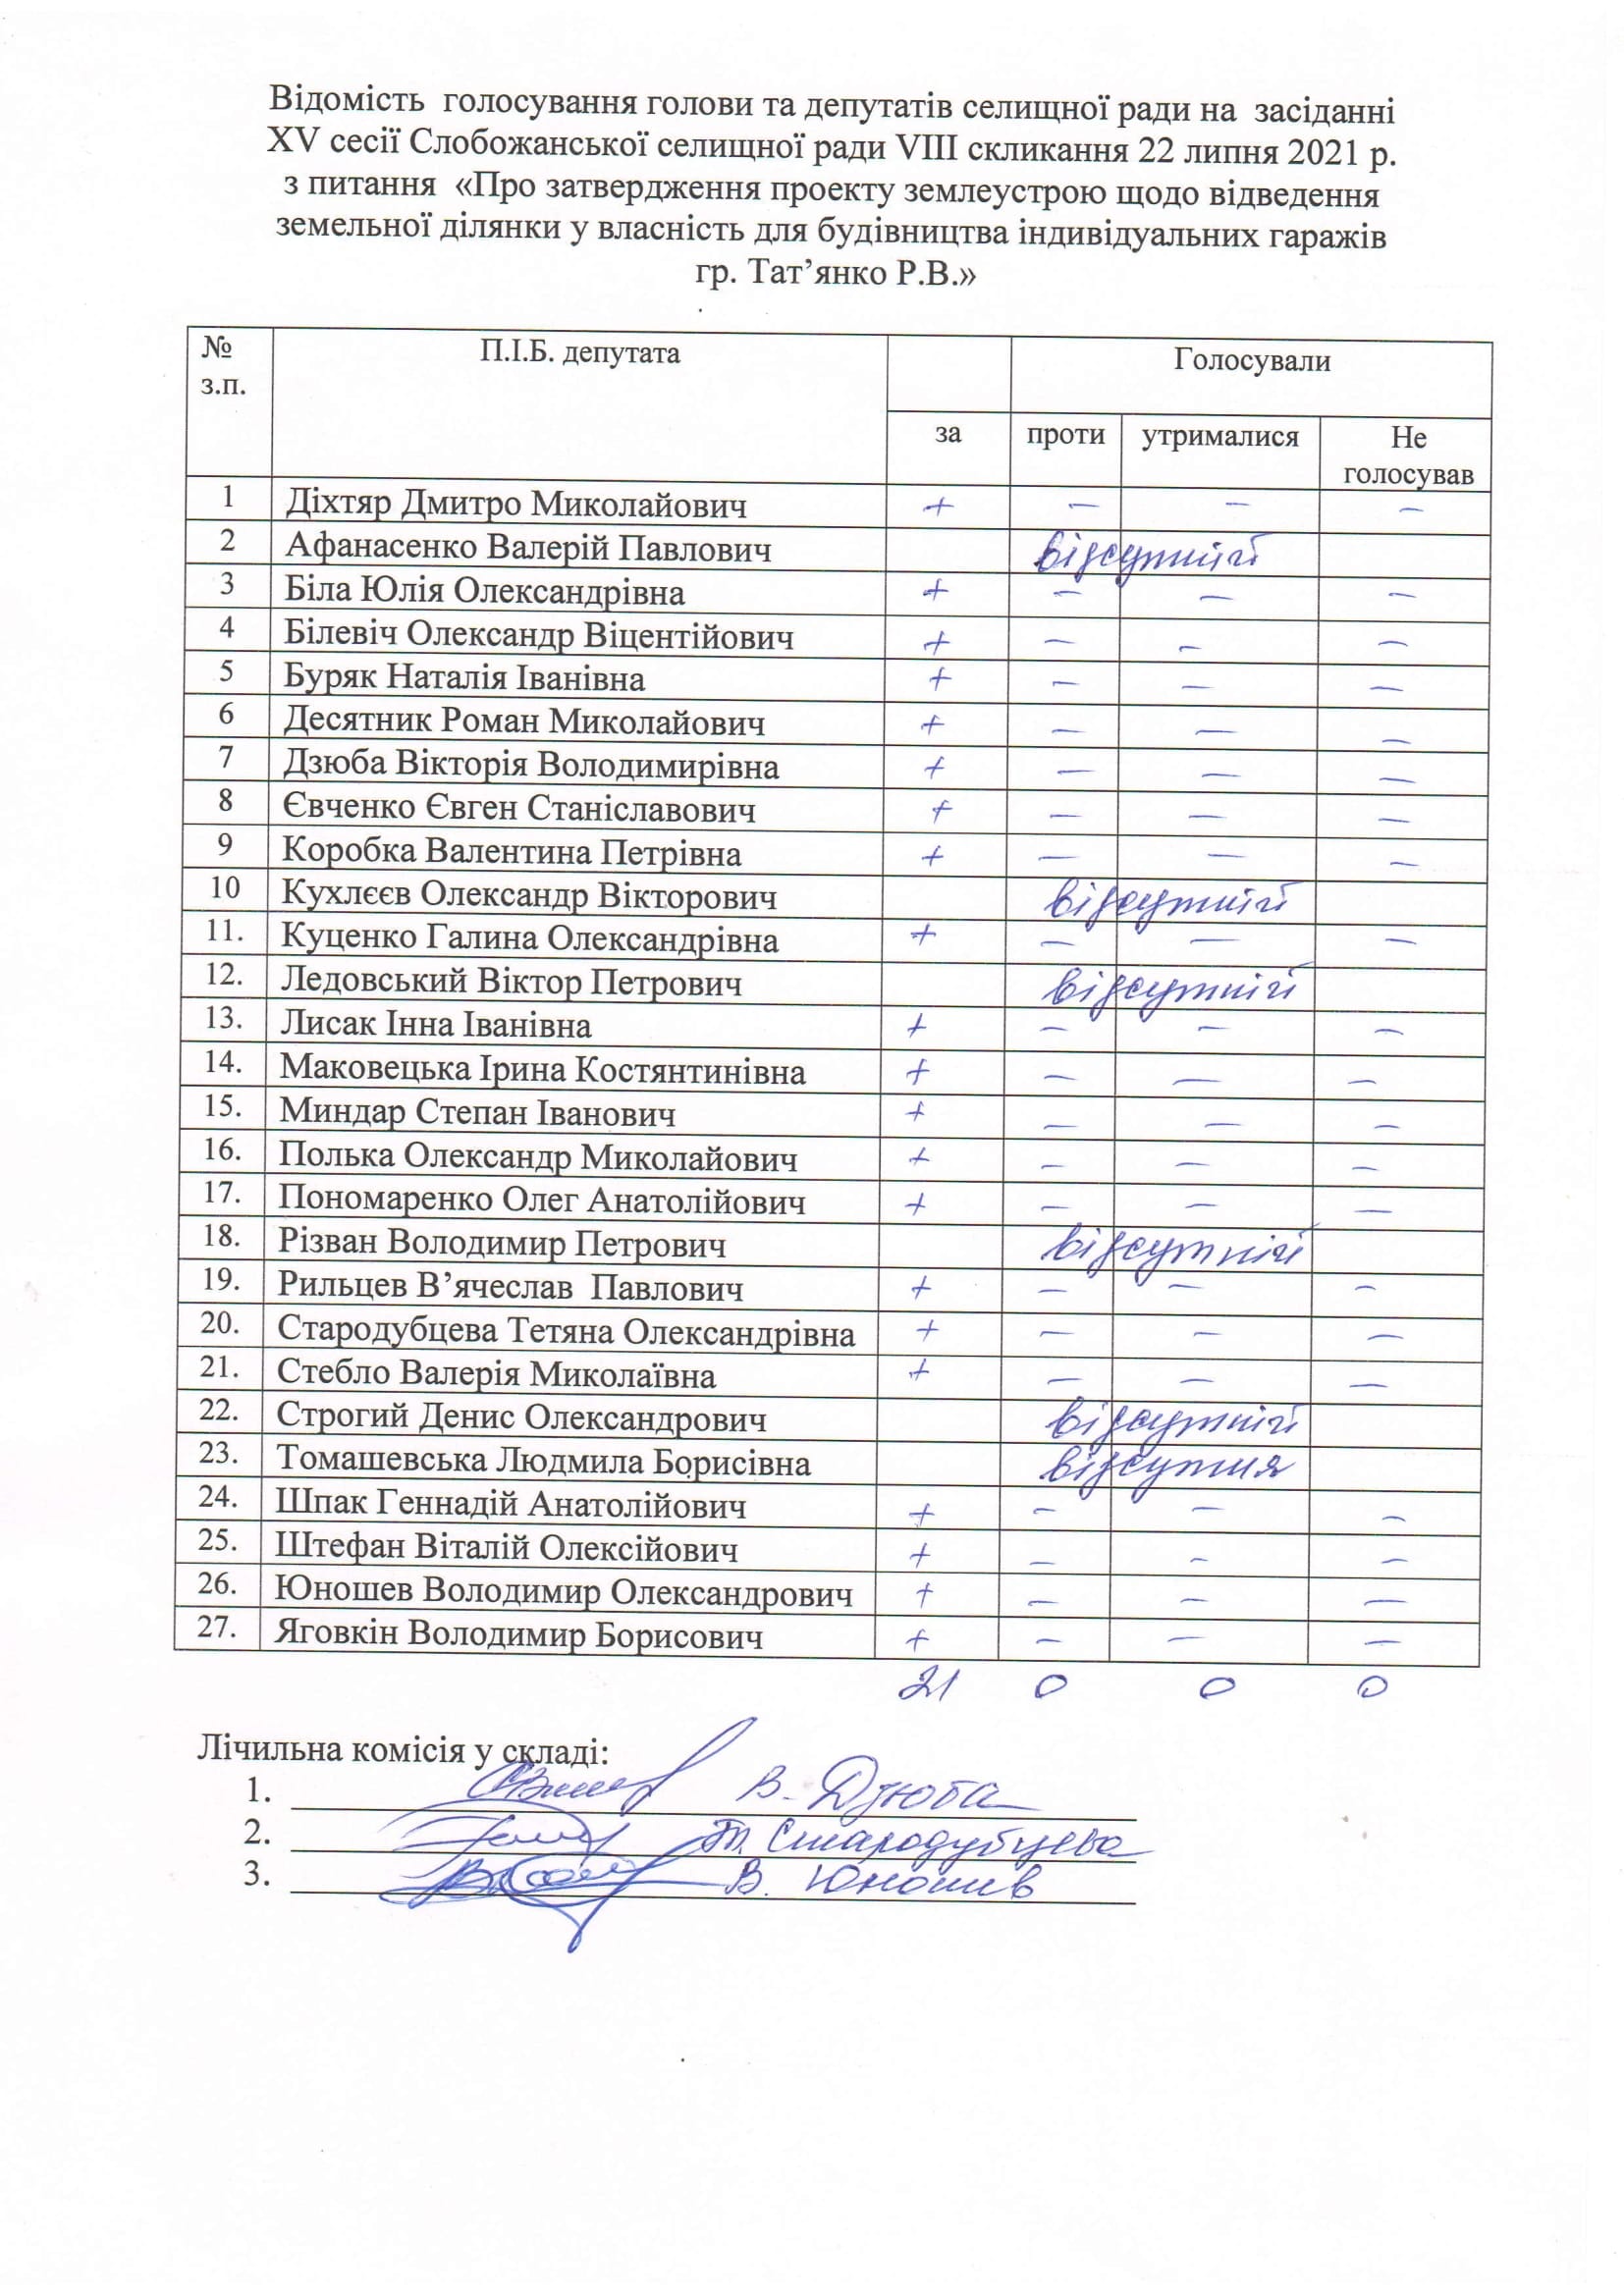 Відомість голосування голови та депутатів селищної ради на засіданні
XV сесії Слобожанської селищної ради VIII скликання 22 липня 2021 р.
з питання «Про затвердження проекту землеустрою щодо відведення
земельної ділянки у власність для будівництва індивідуальних гаражів
гр. Тат’янко Р.В.»
№ з.п. П.І.Б. депутата Голосували
за проти утрималися Не голосував
1 Діхтяр Дмитро Миколайович + – – –
2 Афанасенко Валерій Павлович відсутній
3 Біла Юлія Олександрівна + – – –
4 Білевіч Олександр Віцентійович + – – –
5 Буряк Наталія Іванівна + – – –
6 Десятник Роман Миколайович + – – –
7 Дзюба Вікторія Володимирівна + – – –
8 Євченко Євген Станіславович + – – –
9 Коробка Валентина Петрівна + – – –
10 Кухлєєв Олександр Вікторович відсутній
11. Куценко Галина Олександрівна + – – –
12. Ледовський Віктор Петрович відсутній
13. Лисак Інна Іванівна + – – –
14. Маковецька Ірина Костянтинівна + – – –
15. Миндар Степан Іванович + – – –
16. Полька Олександр Миколайович + – – –
17. Пономаренко Олег Анатолійович + – – –
18. Різван Володимир Петрович відсутній
19. Рильцев В’ячеслав Павлович + – – –
20. Стародубцева Тетяна Олександрівна + – – –
21. Стебло Валерія Миколаївна + – – –
22. Строгий Денис Олександрович відсутній
23. Томашевська Людмила Борисівна відсутня
24. Шпак Геннадій Анатолійович + – – –
25. Штефан Віталій Олексійович + – – –
26. Юношев Володимир Олександрович + – – –
27. Яговкін Володимир Борисович + – – –
21 0 0 0
Лічильна комісія у складі:
1. В. Дзюба
2. Т. Стародубцева
3. В. Юношев